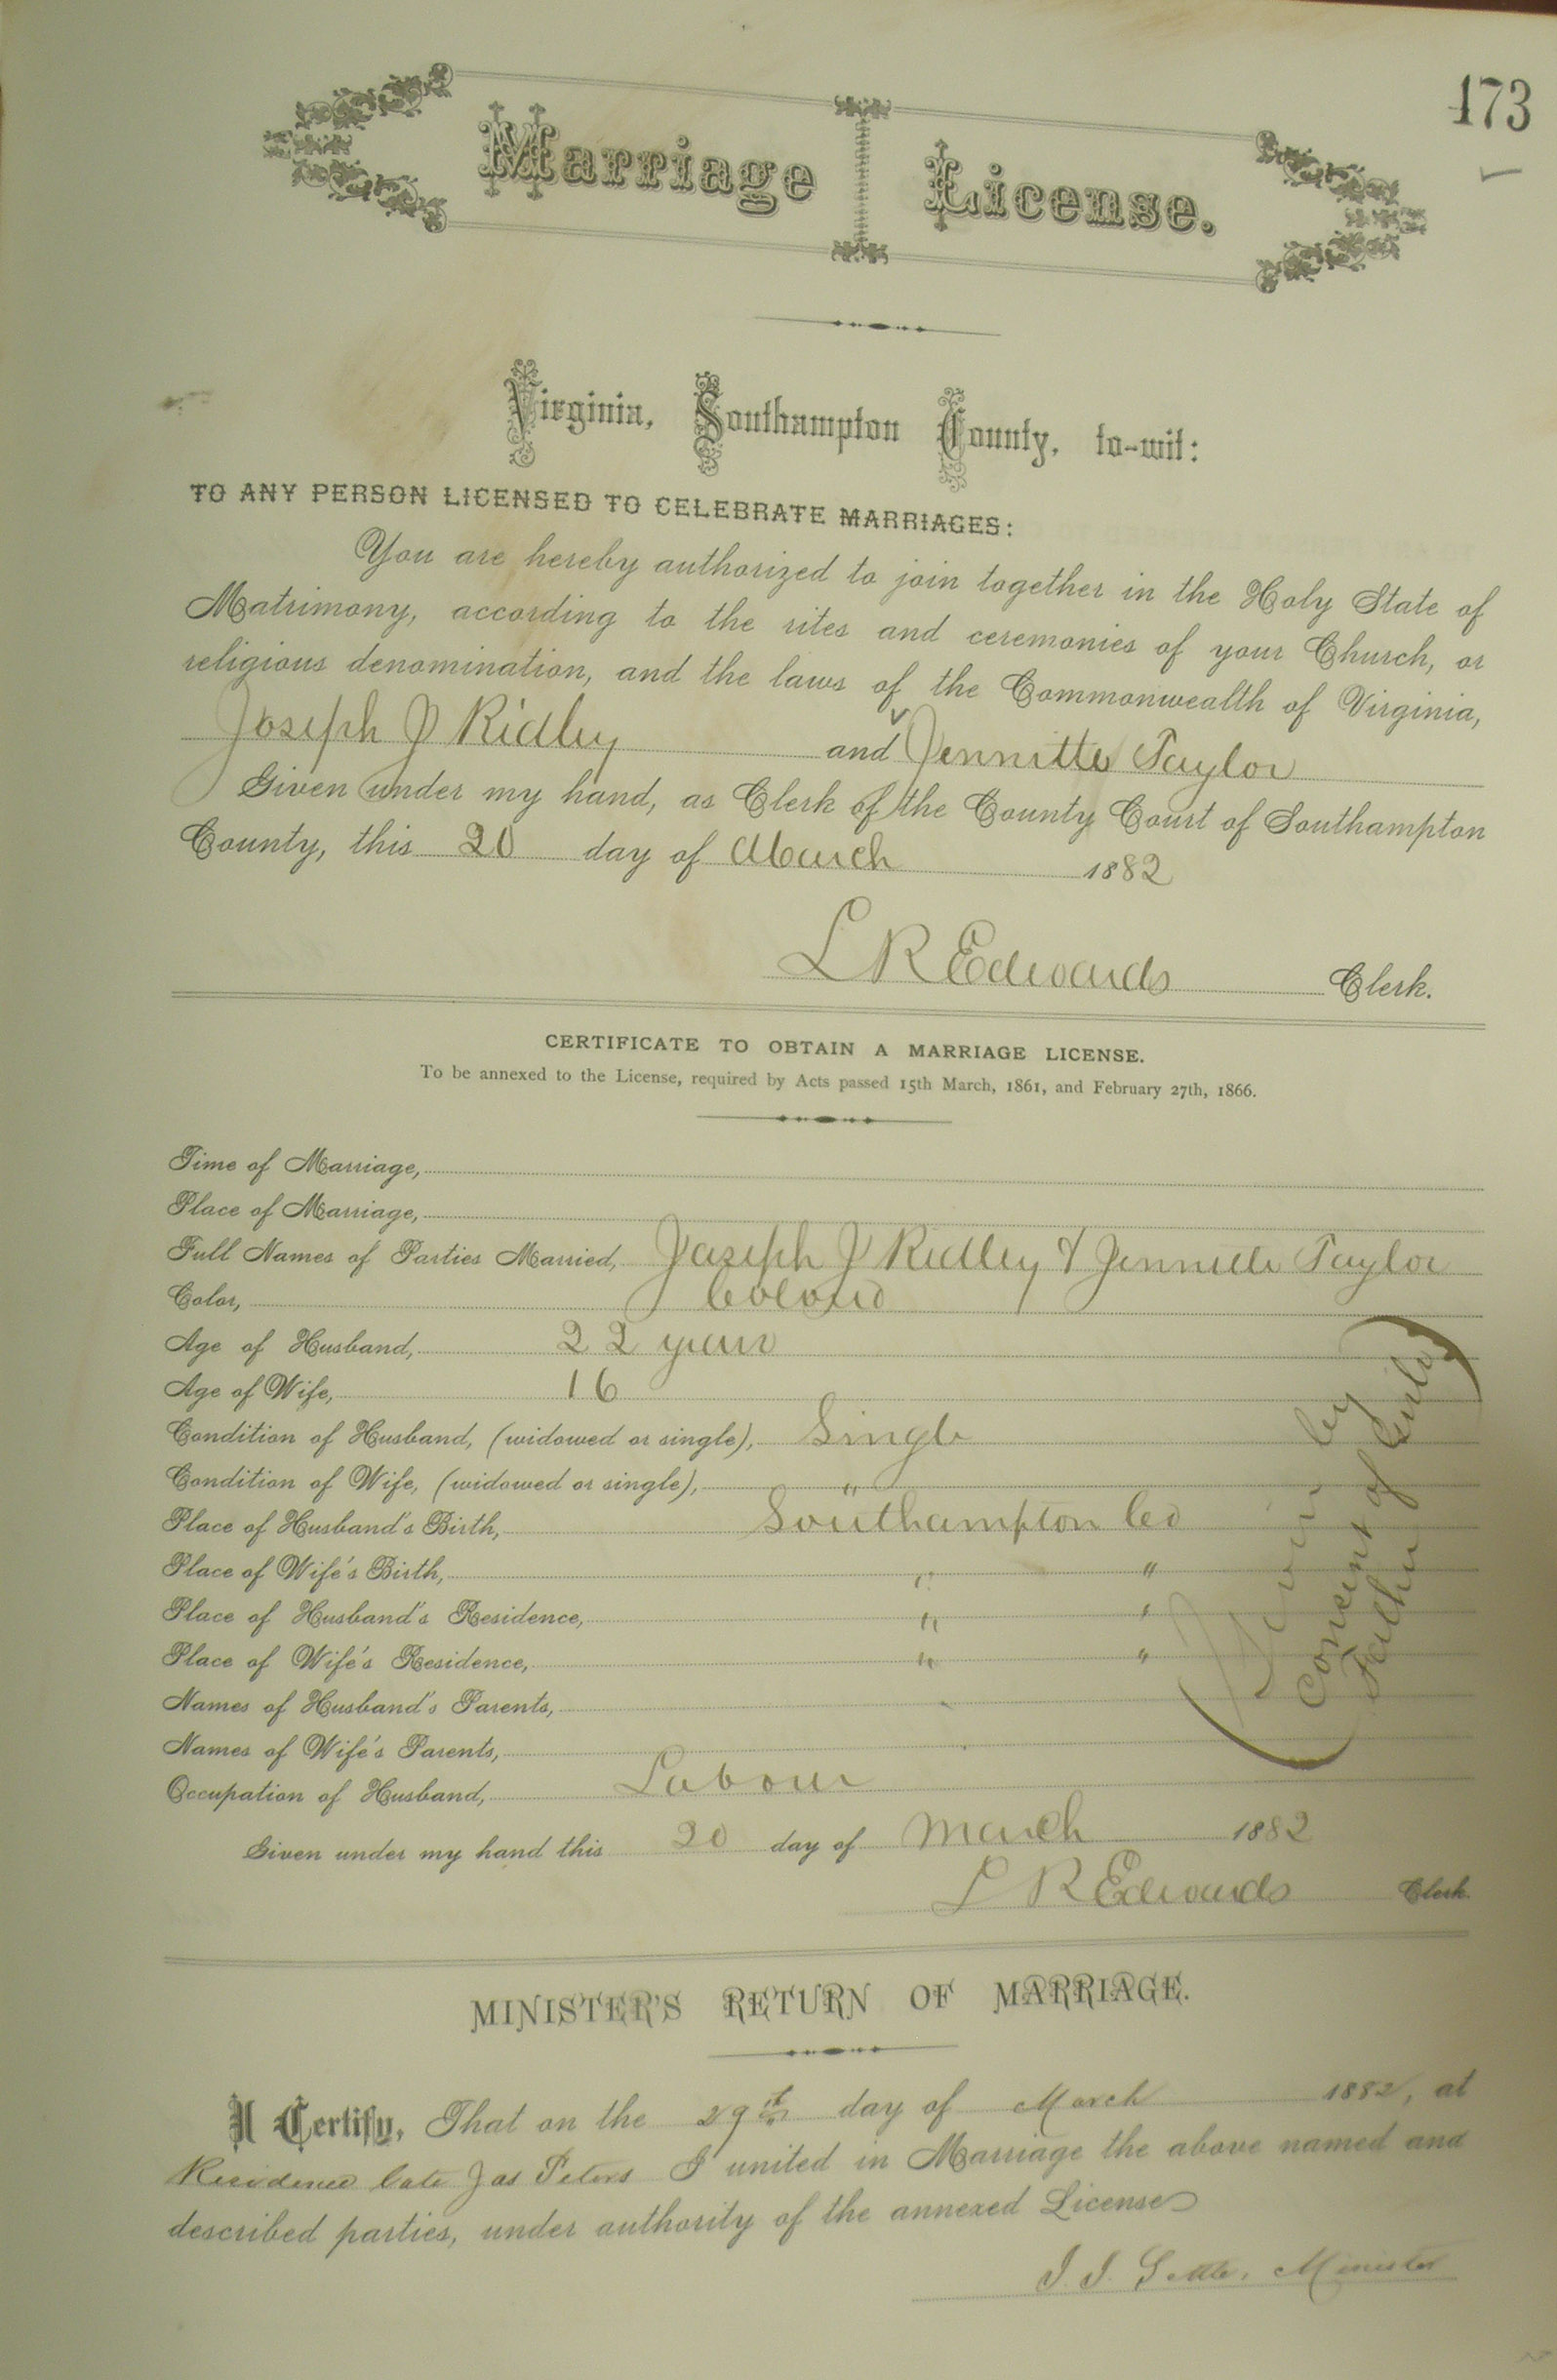 173
Marriage License.
Virginia, Southampton County, to-wit:
TO ANY PERSON LICENSED TO CELEBRATE MARRIAGES:
You are hereby authorized to join together in the Holy State of
Matrimony, according to the rites and ceremonies of your Church, or
religious denomination, and the laws of the Commonwealth of Virginia,
Joseph J Ridley and Jennitte Taylor
Given under my hand, as Clerk of the County Court of Southampton
County, this 20 day of March 1882
L R Edwards Clerk.
CERTIFICATE TO OBTAIN A MARRIAGE LICENSE.
To be annexed to the License, required by Acts passed 15th March, 1861, and February 27th, 1866.
Time of Marriage,
Place of Marriage,
Full Names of Parties Married, Joseph J Ridley & Jennitte Taylor
Color, Colord
Age of Husband, 22 years
Age of Wife, 16
Condition of Husband, (widowed or single), Single
Condition of Wife, (widowed or single), "
Place of Husband's Birth, Southampton Co
Place of Wife's Birth, " "
Place of Husband's Residence, " "
Place of Wife's Residence, " "
Names of Husband's Parents,
Names of Wife's Parents,
Occupation of Husband, Labour
Given under my hand this 20 day of March 1882
L R Edwards Clerk
by
Consent of
Father
MINISTER'S RETURN OF MARRIAGE.
I Certify, That on the 29th day of March 1882, at
Residence late Jas Peters I united in Marriage the above named and
described parties, under authority of the annexed License
Minister